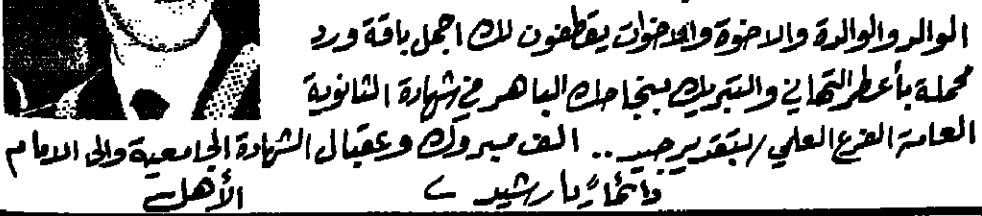 الوالد والوالدة والاخوة والاخوات يقطفون لك اجمل باقة ورد
محملة بأعطر التهاني والتبريك بنجاحك الباهر في شهادة الثانوية
العامة الفرع العلمي بتقدير جيد .. الف مبروك وعقبال الشهادة الجامعية والى الامام
دائماً يا رشيد
الأهل